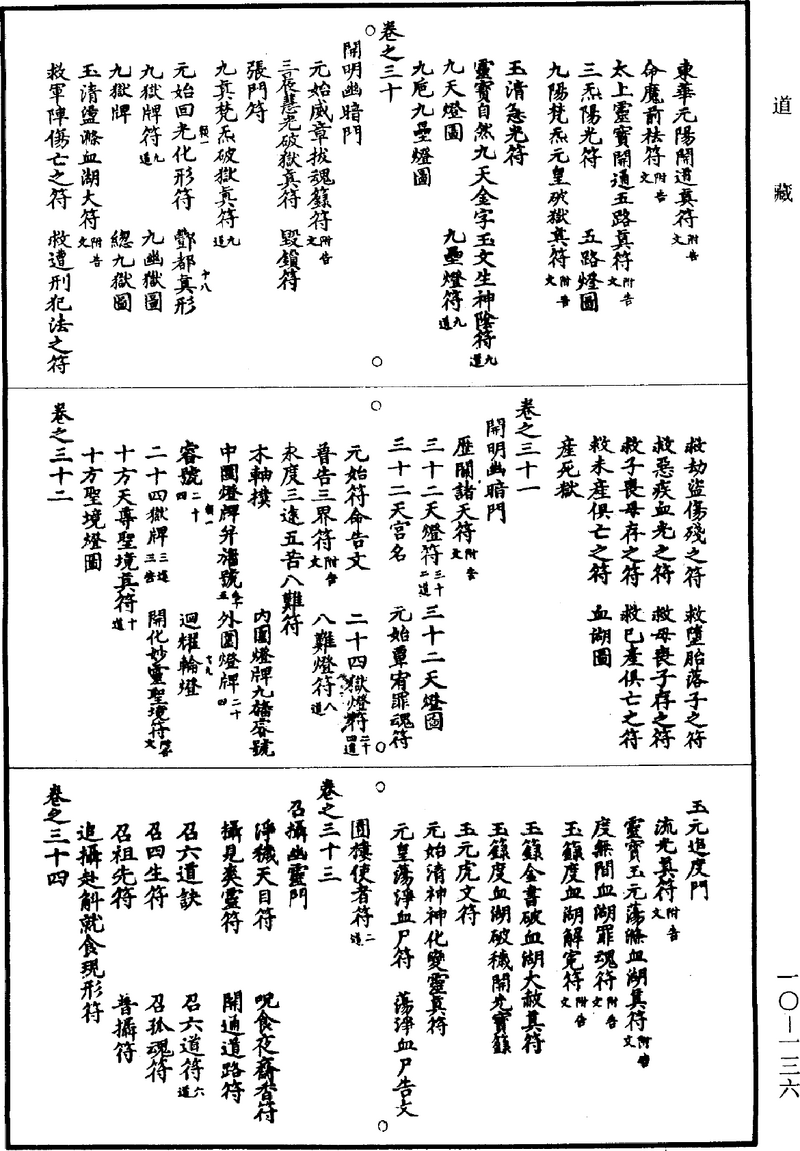 道藏
東華元陽開道真符附告文
命魔前祛符附告文
太上靈寶開通五路真符附告文
三炁陽光符　五路燈圖
九陽梵炁元皇破獄真符附告文
玉清急光符
靈寶自然九天金字玉文生神陰符九道
九天燈圖　九壘燈符九道
九巵九壘燈圖
卷之三十
開明幽暗門
元始威章拔魂籙符附告文
三夜慧光破獄真符　毀鎖符
張門符
九真梵炁破獄真符九道
元始回光化形符　酆都真形十八類一
九獄牌符九道　九幽獄圖
九獄牌　總九獄圖
玉清盪滌血湖大符附告文
救軍陣傷亡之符　救遭刑犯法之符
救劫盜傷殘之符　救墮胎落子之符
救惡疾血光之符　救母喪子存之符
救子喪母存之符　救已產俱亡之符
救未產俱亡之符　血湖圖
產死獄
卷之三十一
開明幽暗門
歷關諸天符附告文
三十二天燈符三十二道　三十二天燈圖
三十二天宮名　元始覃宥罪魂符
元始符命告文　二十四獄燈符二十四道
普告三界符附告文　八難燈符八道
永度三途五苦八難符
木軸模　內圍燈牌九牆睿號
中圍燈牌并旛號　外圍燈牌二十四
睿號二十四　迴耀輪燈十九類一
二十四獄牌三道三告　開化妙靈聖境符
十方天尊聖境真符十道
十方聖境燈圖
卷之三十二
玉元追度門
流光真符附告文
靈寶玉元蕩滌血湖真符附告文
度無間血湖罪魂符附告文
玉籙度血湖解冤符附告文
玉籙金書破血湖大赦真符
玉籙度血湖破穢開光寶籙
玉元虎文符
元始清神神化變靈真符
元皇蕩淨血尸符　蕩淨血尸告文
圊樓使者符二道
卷之三十三
召攝幽靈門
淨穢天目符　呪食夜齋香符
攝見爽靈符　開通道路符
召六道訣　召六道符六道
召四生符　召孤魂符
召祖先符　普攝符
追攝赴斛就食現形符
卷之三十四
一〇—一三六